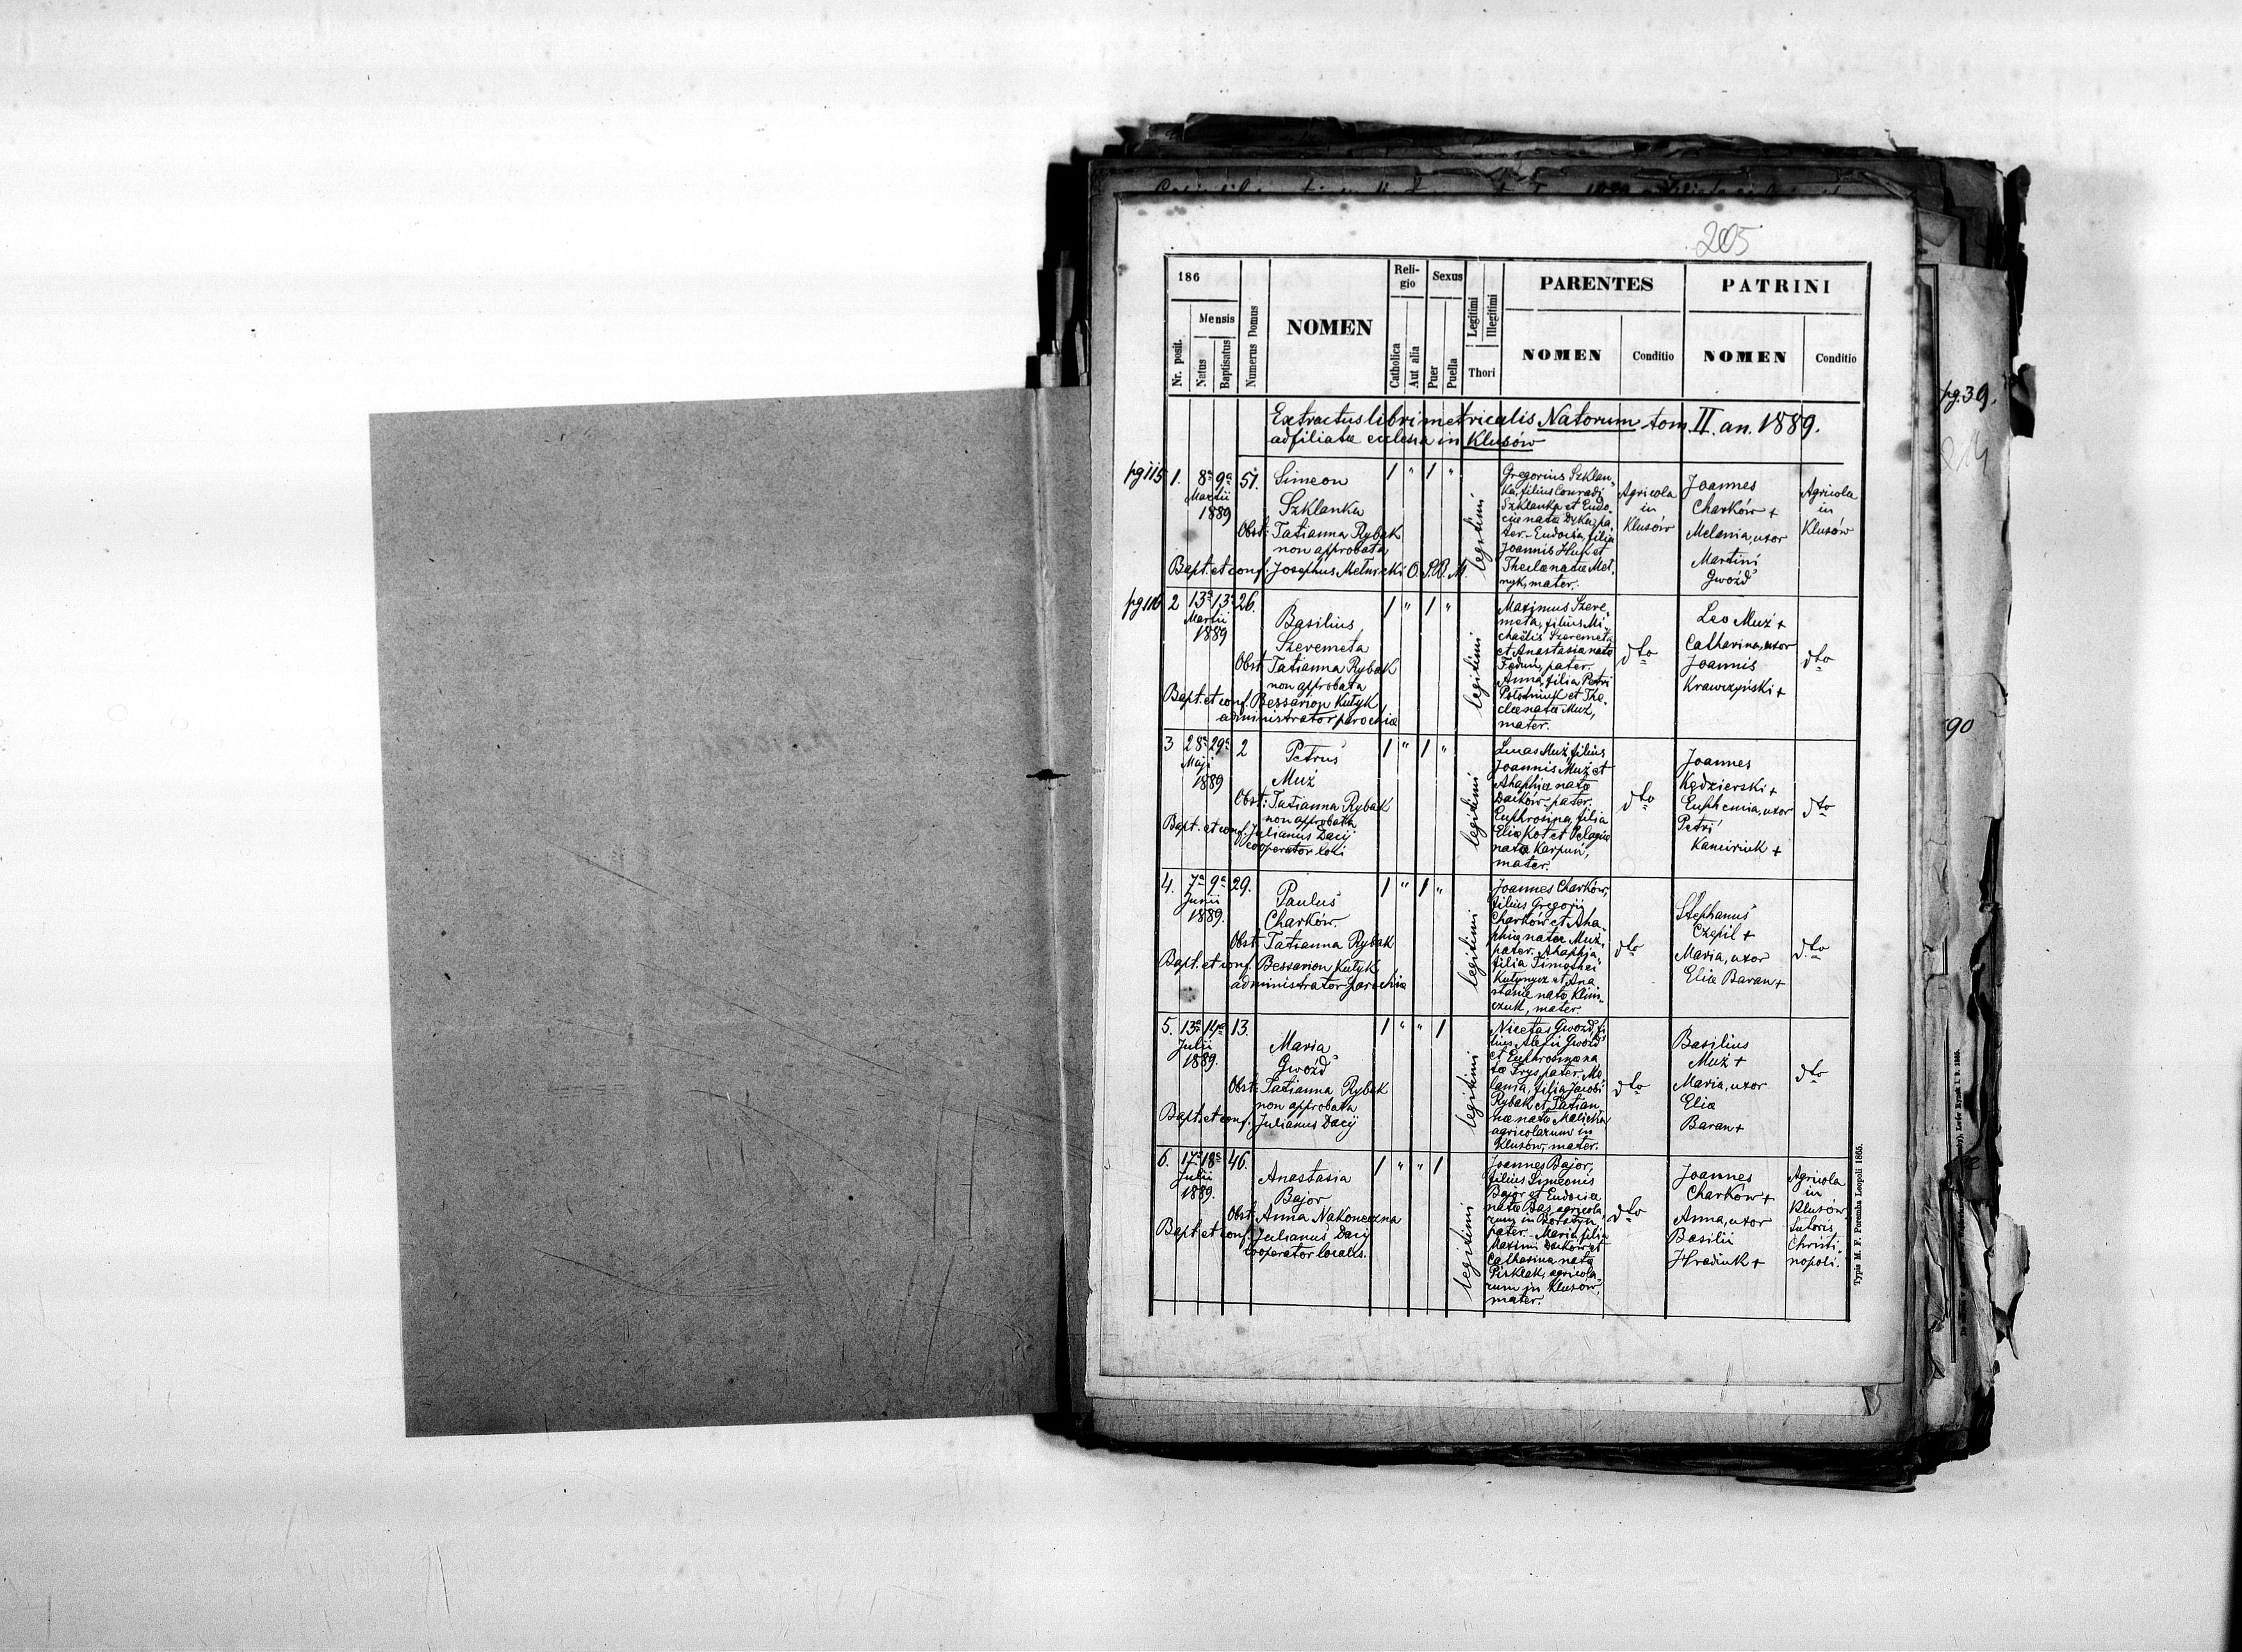 205
186
Nr. posit.
Mensis
Natus
Baptisatus
Numerus Domus
NOMEN
Reli-
gio
Catholica
Aut alia
Sexus
Puer
Puella
Legitimi
Illegitimi
Thori
PARENTES
NOMEN
Conditio
PATRINI
NOMEN
Conditio
Extractus libri metricalis Natorum tom. II. an. 1889.
adfiliatæ ecclesiæ in Klusów
pg 115
1. 8ª 9ª
Martii
1889
51.
Simeon
Szklanka
Obst: Tatianna Rybak
non approbata
Bapt. et conf. Josephus Melnicki O.S.B.M.
1 " 1 "
legitimi
Gregorius Szklan-
ka, filius Conradi
Szklanka et Eudo-
ciæ natæ Dyka, pa-
ter. - Eudocia, filia
Joannis Huk et
Theclæ natæ Mel-
nyk, mater.
Agricola
in
Klusów
Joannes
Charków +
Melania, uxor
Martini
Gwożd
Agricola
in
Klusów
pg 116
2 13ª 13ª
Martii
1889
26.
Basilius
Szeremeta
Obst: Tatianna Rybak
non approbata
Bapt. et conf. Bessarion Kułyk,
administrator parochiæ
1 " 1 "
legitimi
Maximus Szere-
meta, filius Mi-
chaëlis Szeremeta
et Anastasia nata
Feduń, pater.
Anna, filia Petri
Połotniuk et The-
clæ natæ Muż,
mater.
dto
Leo Muż +
Catharina, uxor
Joannis
Krawczyński +
dto
3 28ª 29ª
Maji
1889
2
Petrus
Muż
Obst: Tatianna Rybak
non approbata
Bapt. et conf. Julianus Dacij
cooperator loci
1 " 1 "
legitimi
Lucas Muż, filius
Joannis Muż et
Ahaphiæ natæ
Daćków - pater.
Euphrosina, filia
Eliæ Kot et Pelagiæ
natæ Karpuń,
mater.
dto
Joannes
Kędzierski +
Euphemia, uxor
Petri
Kaneiriuk +
dto
4. 7ª 9ª
Junii
1889.
29.
Paulus
Charków.
Obst: Tatianna Rybak
Bapt. et conf. Bessarion Kułyk
administrator parochiæ
1 " 1 "
legitimi
Joannes Charków,
filius Gregorij
Charków et Aha-
phiæ natæ Muż,
pater. Ahaphia
filia Timothei
Kułynycz et Ana-
stasiæ natæ Klim-
czuk, mater.
dto
Stephanus
Czepil +
Maria, uxor
Eliæ Baran +
dto
5. 13ª 14ª
Julii
1889.
13.
Maria
Gwożd
Obst: Tatianna Rybak
non approbata
Bapt. et conf. Julianus Dacij
1 " " 1
legitimi
Nicetas Gwożd, fi-
lius Alexii Gwożd
et Euphrosinæ na-
tæ Frys, pater. Me-
lania, filia Jacobi
Rybak et Tatian-
næ natæ Malicka
agricolarum in
Klusów, mater.
dto
Basilius
Muż +
Maria, uxor
Eliæ
Baran +
dto
6. 17ª 18ª
Julii
1889.
46.
Anastasia
Bajor
Obst: Anna Nakoneczna
Bapt. et conf. Julianus Dacij
cooperator localis.
1 " " 1
legitimi
Joannes Bajor,
filius Simeonis
Bajor et Eudociæ
natæ Bas, agricola-
rum in Borátyn
pater. - Maria, filia
Maximi Daćków et
Catharina nata
Pirklak, agricola-
rum in Klusów,
mater.
dto
Joannes
Charków +
Anna, uxor
Basilii
Hraciuk +
Agricola
in
Klusów
sutoris
Christi-
nopoli.
Typis M. F. Poremba Leopoli 1865.
pg. 39.
90